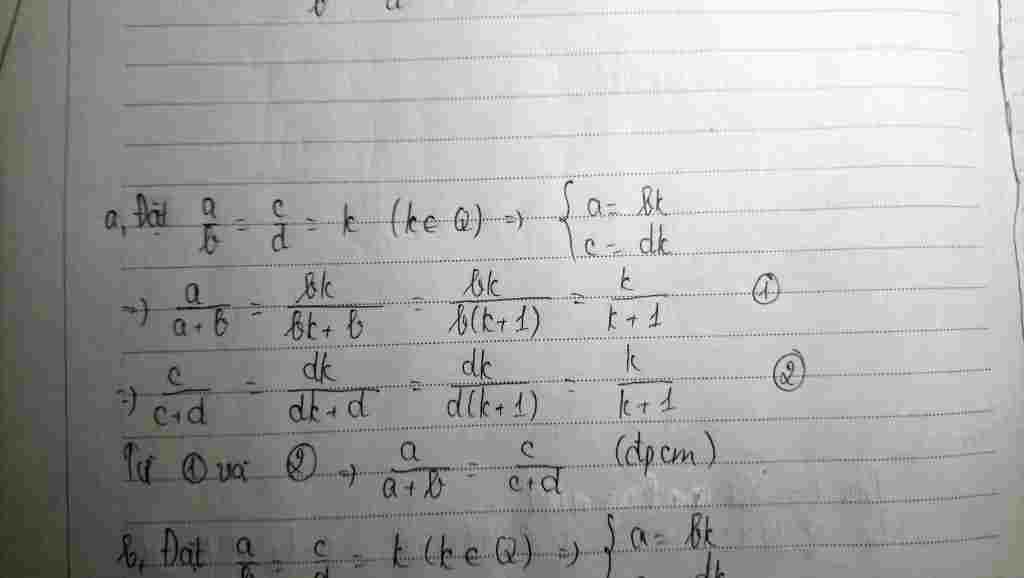 a, Đặt a/b = c/d = k (k ∈ Q) => { a = bk
c = dk
=> a/(a+b) = bk/(bk+b) = bk/b(k+1) = k/(k+1) ①
=> c/(c+d) = dk/(dk+d) = dk/d(k+1) = k/(k+1) ②
Từ ① và ② => a/(a+b) = c/(c+d) (dpcm)
b, Đặt a/b = c/d = k (k ∈ Q) => { a = bk
dk